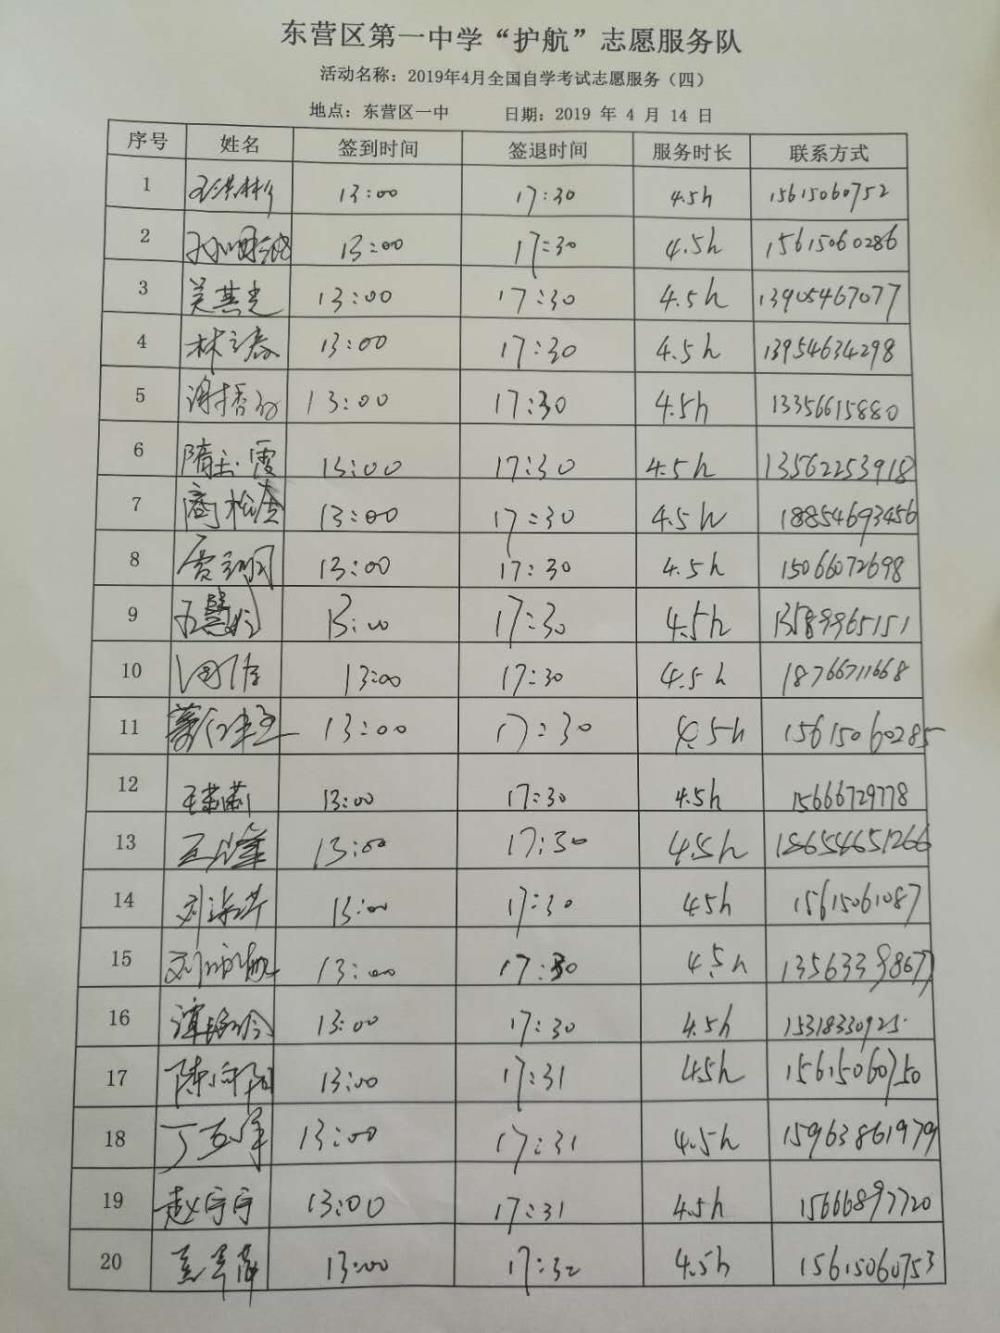 东营区第一中学“护航”志愿服务队
活动名称：2019年4月全国自学考试志愿服务（四）
地点：东营区一中 日期：2019 年 4 月 14 日
序号 姓名 签到时间 签退时间 服务时长 联系方式
1 13:00 17:30 4.5h 15615060752
2 13:00 17:30 4.5h 15615060286
3 吴其光 13:00 17:30 4.5h 13905467077
4 林立春 13:00 17:30 4.5h 13954634298
5 13:00 17:30 4.5h 13356615880
6 隋玉霞 13:00 17:30 4.5h 13562253918
7 商松 13:00 17:30 4.5h 18854693456
8 13:00 17:30 4.5h 15066072698
9 13:00 17:30 4.5h 13589965151
10 13:00 17:30 4.5h 18766711668
11 13:00 17:30 4.5h 15615060285
12 王莉莉 13:00 17:30 4.5h 15666729778
13 13:00 17:30 4.5h 18654651266
14 刘 13:00 17:30 45h 15615061087
15 刘 13:00 17:30 4.5h 13563398677
16 谭 13:00 17:30 4.5h 1531833092
17 陈向阳 13:00 17:31 4.5h 15615060750
18 丁 13:00 17:31 4.5h 15963861979
19 赵宇宇 13:00 17:31 4.5h 15666897720
20 13:00 17:32 4.5h 15615060753